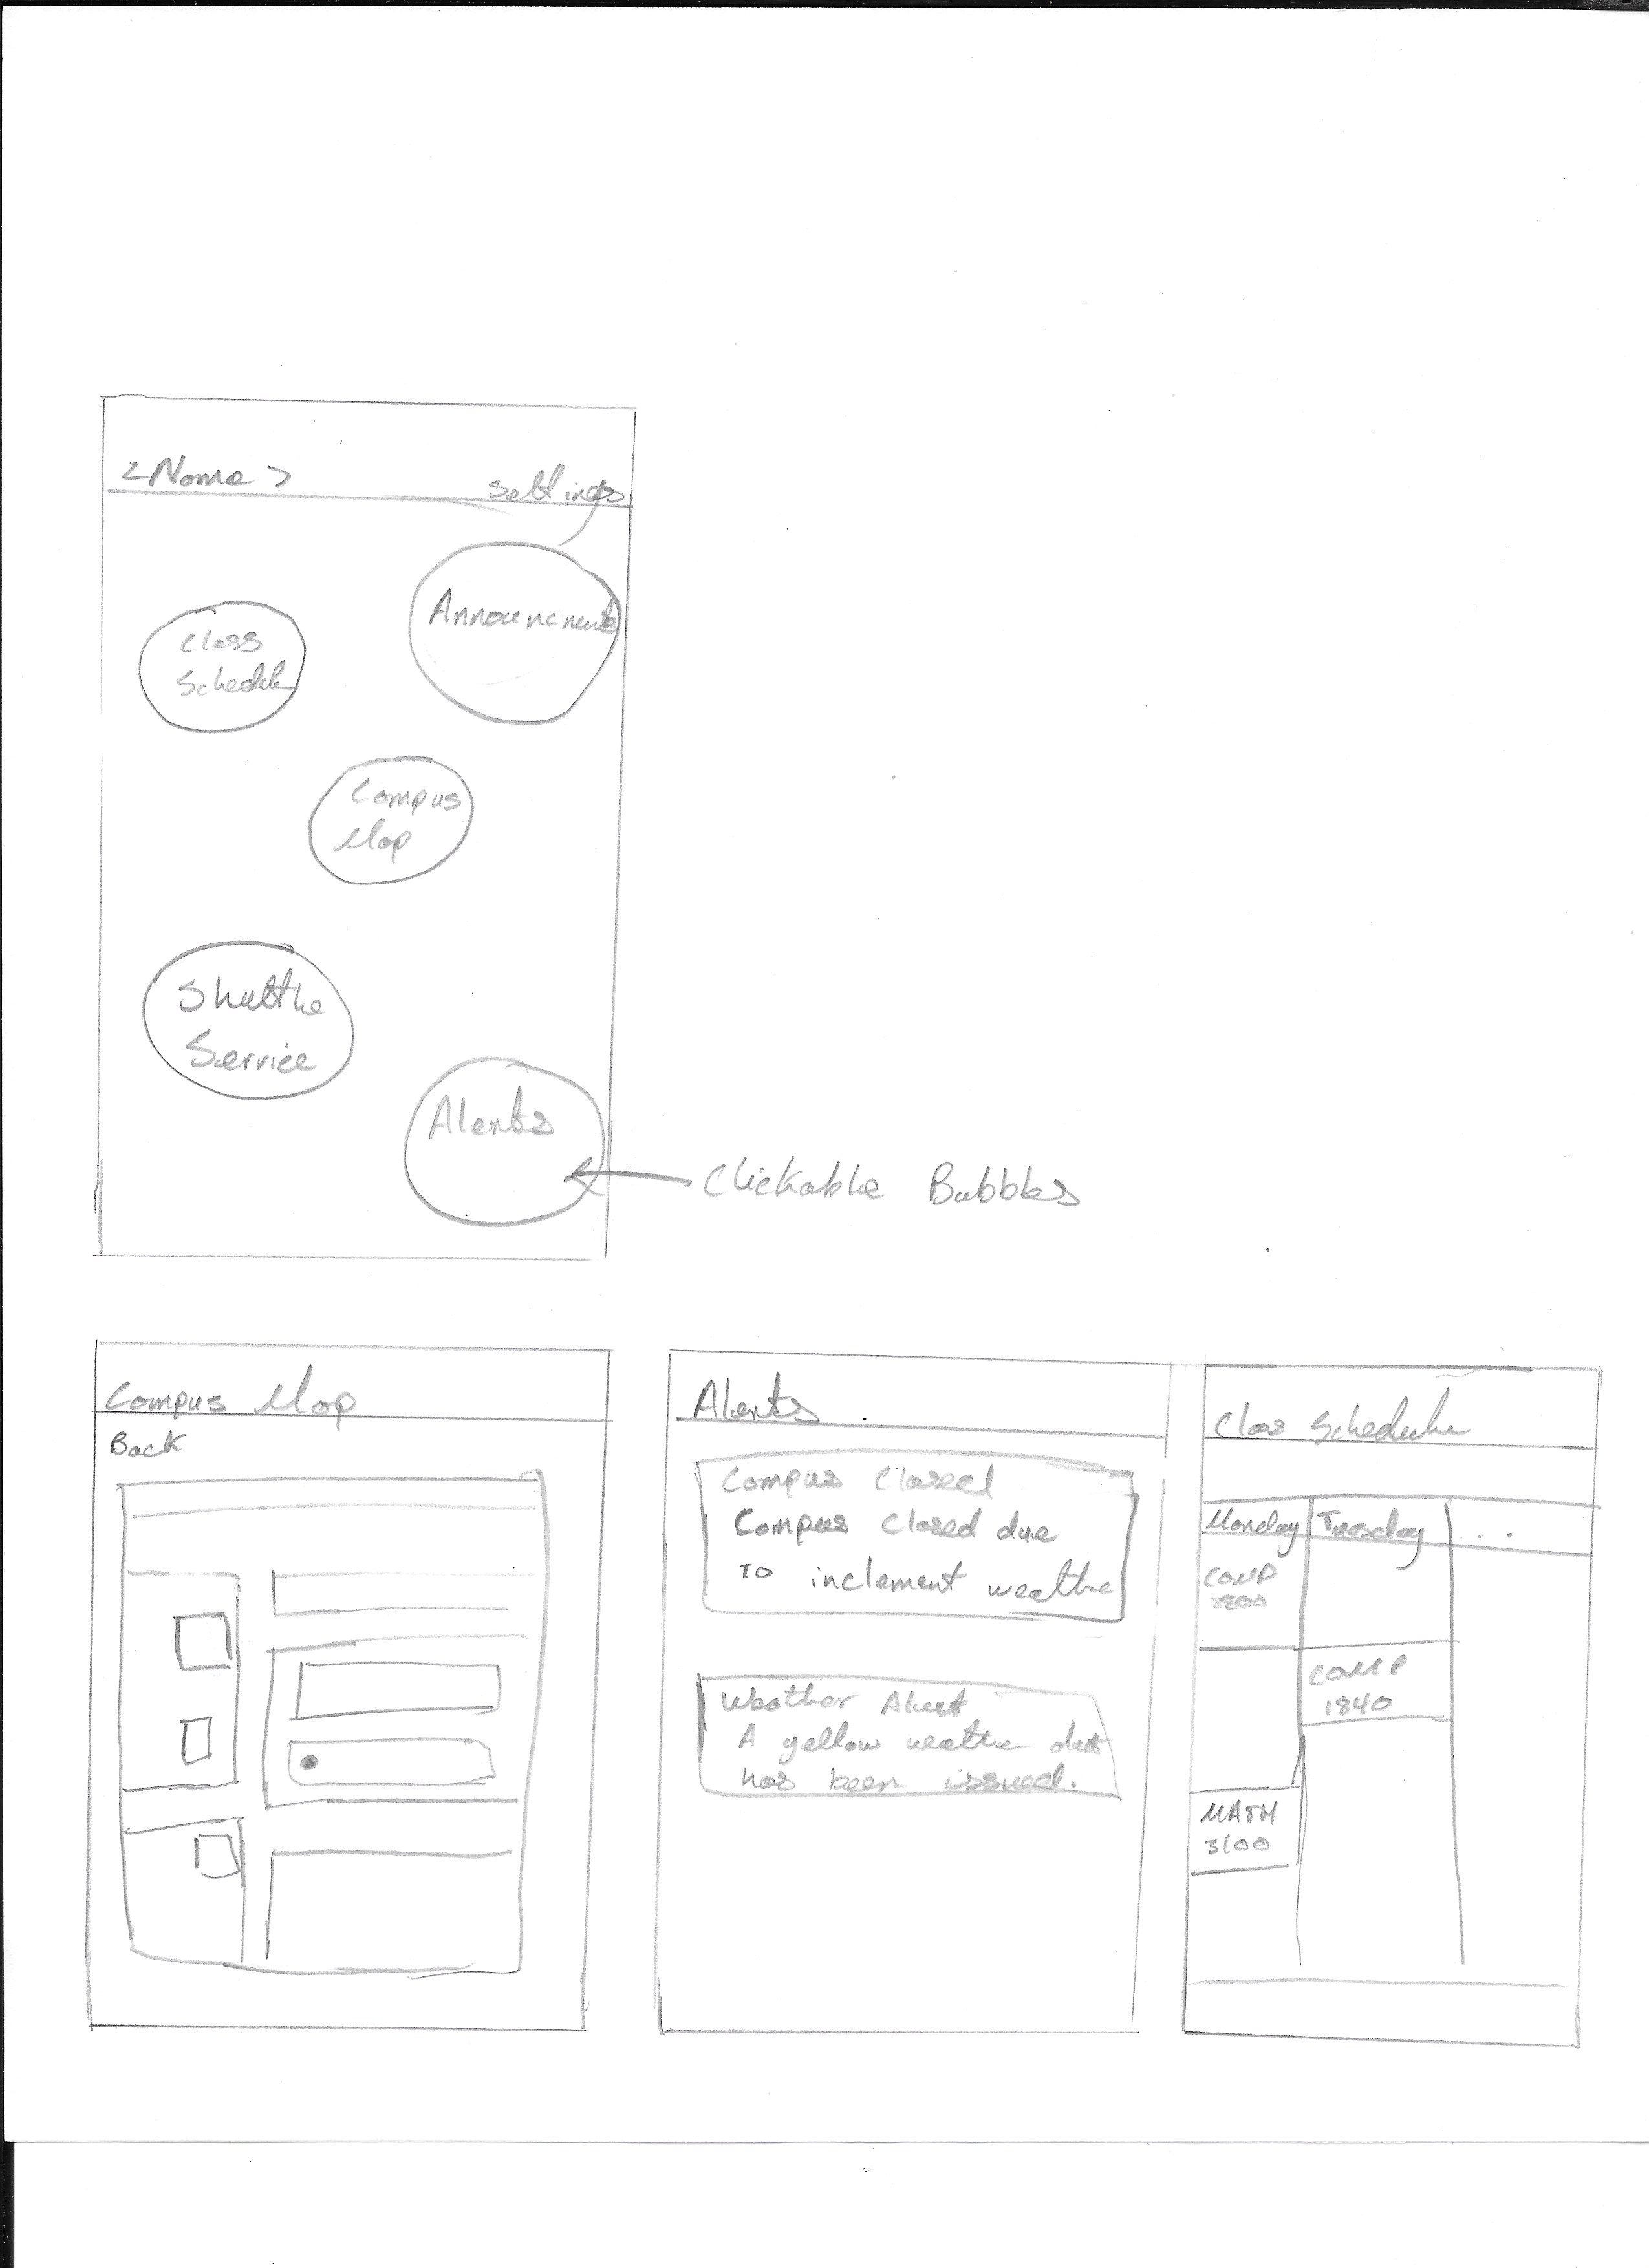 <Name>
Settings
Announcments
Class
Schedule
Campus
Map
Shuttle
Service
Alerts
Clickable Bubbles
Campus Map
Back
Alerts
Campus Closed
Campus Closed due
To inclement weather
Weather Alert
A yellow weather alert
has been issued.
Class Schedule
Monday Tuesday ...
COMP
COMP
1840
MATH
3100